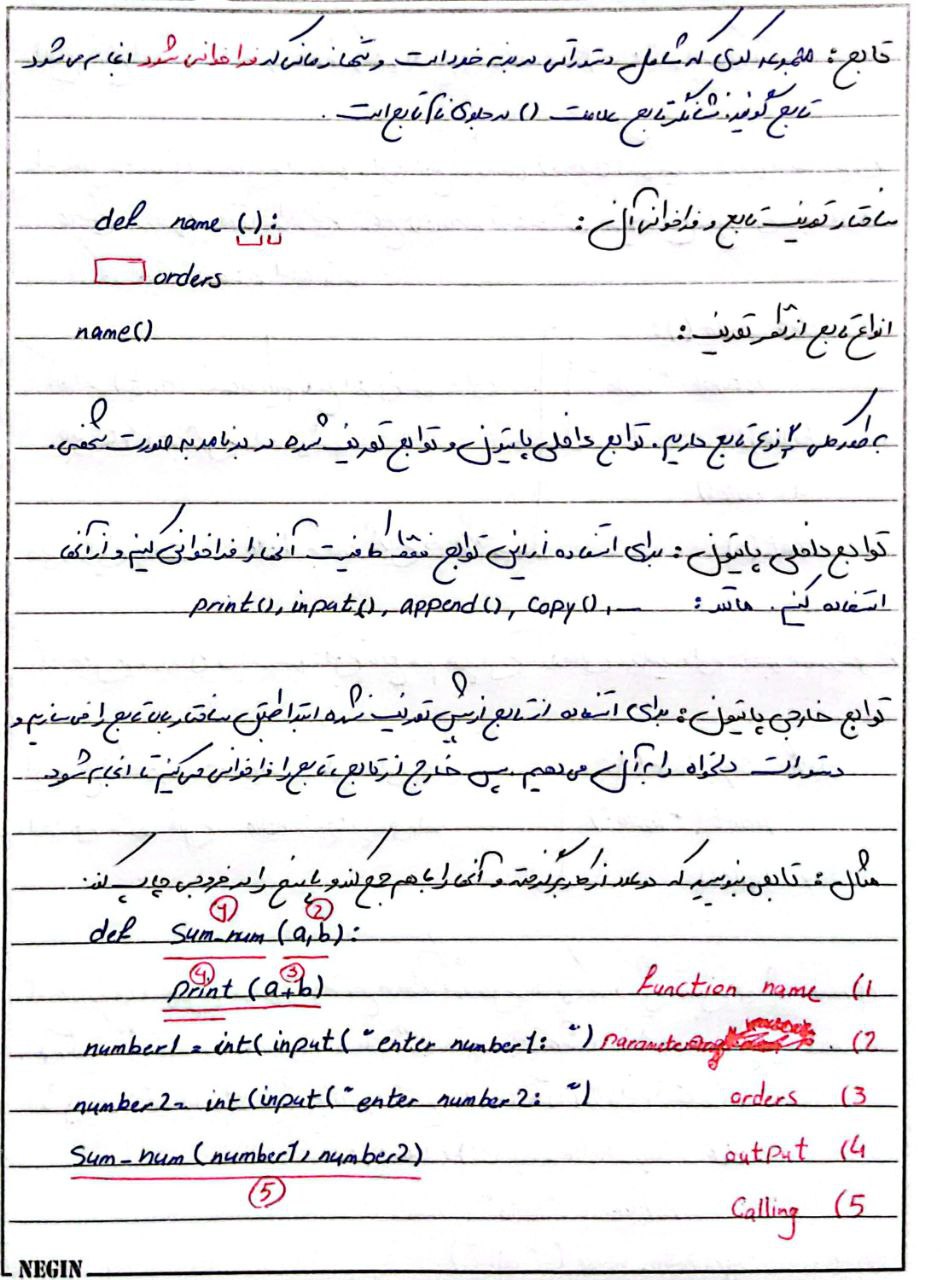 تابع : مجموعه کدی که شامل دستوراتی در بدنه خود است و تنها زمانی که فراخوانی شود انجام می‌شود
تابع گویند. نشانگر تابع علامت () در جلوی نام تابع است .
ساختار تعریف تابع و فراخوانی آن :
def name ():
orders
name()
انواع تابع از نظر تعریف :
به طور کلی 2 نوع تابع داریم. توابع داخلی پایتون و توابع تعریف شده در برنامه به صورت شخصی.
توابع داخلی پایتون : برای استفاده از این توابع فقط کافیست آنها را فراخوانی کنیم و از آنها
استفاده کنیم. مانند : print(), input(), append(), copy(), ...
توابع خارجی پایتون : برای استفاده از تابع از پیش تعریف نشده ابتدا طبق ساختار بالا تابع را می‌سازیم و
دستورات دلخواه را به آن می‌دهیم. پس خارج از تابع، تابع را فراخوانی می‌کنیم تا انجام شود.
مثال : تابعی بنویسید که دو عدد از کاربر گرفته و آنها را با هم جمع کند و پاسخ را در خروجی چاپ کند:
1 2
def sum_num (a,b):
4 3
print (a+b)
function name (1
number1 = int(input("enter number1: ")
parameter (2
number2= int(input("enter number2: ")
orders (3
sum_num(number1, number2)
output (4
5
Calling (5
NEGIN